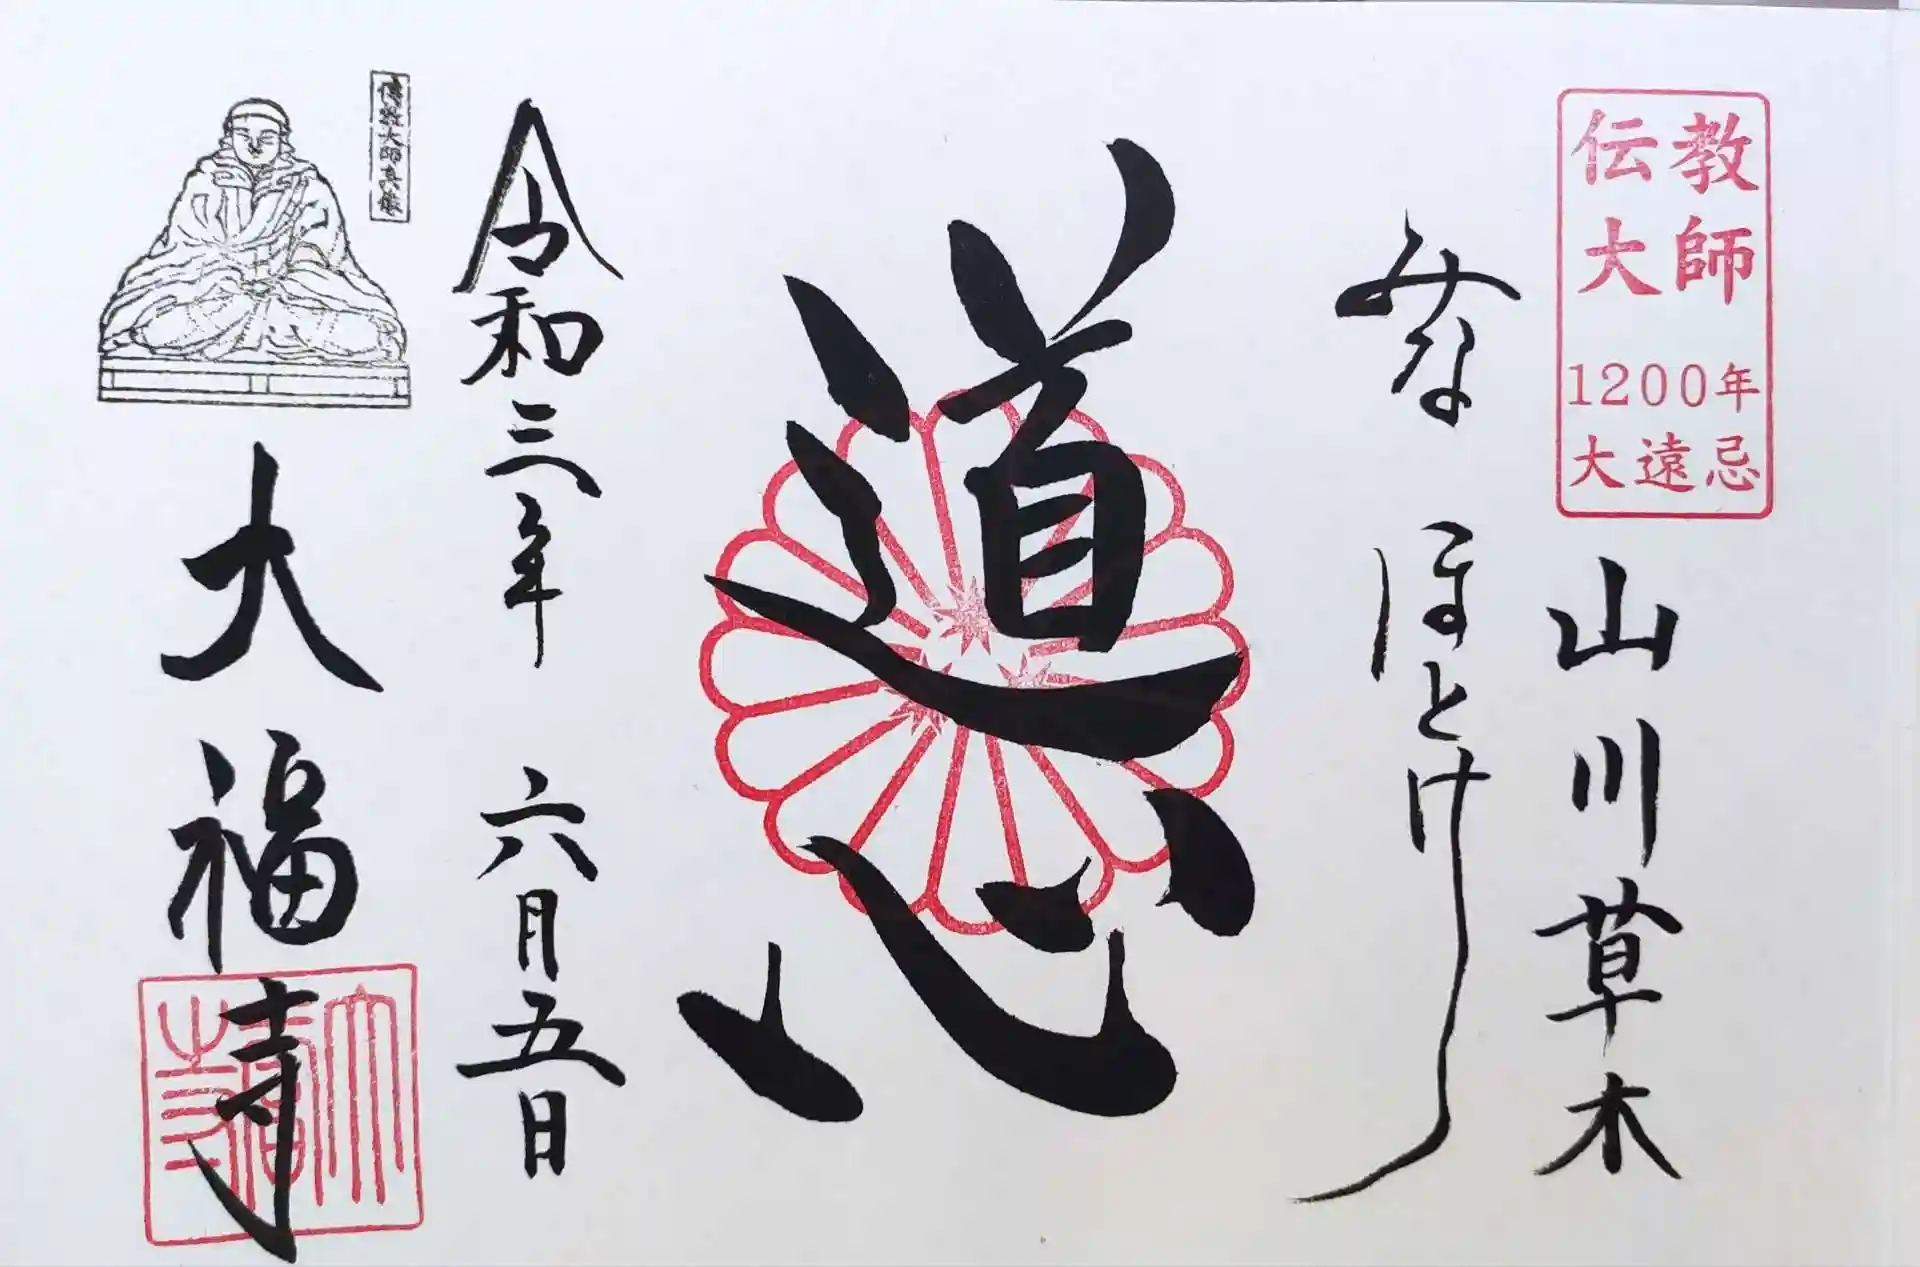 伝教
大師
1200年
大遠忌
山川草木
みな ほとけ
道心
令和三年 六月五日
傳教大師真像
大福寺
大福寺